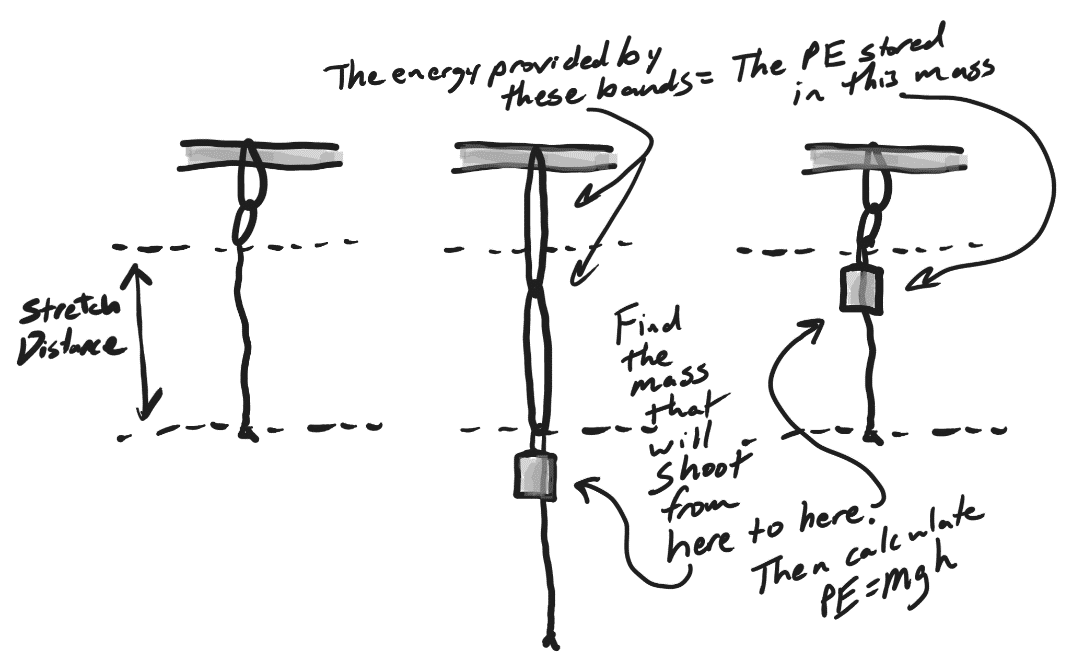 The energy provided by
these bands = The PE stored
in this mass
Stretch
Distance
Find
the
mass
that
will
shoot
from
here to here.
Then calculate
PE=mgh